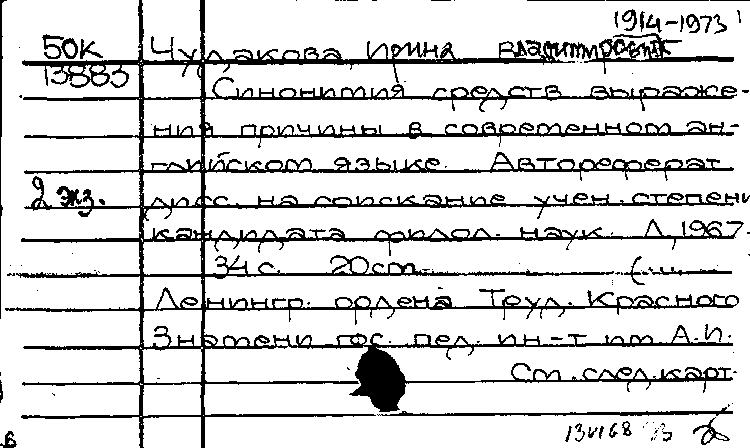 1914-1973
50К Чудакова, Ирина Владимировна
13883 Синонимия средств выраже-
ния причины в современном ан-
глийском языке. Автореферат
2 экз. дисс. на соискание учен. степени
кандидата филол. наук. Л., 1967.
34 с. 20 см.
Ленингр. ордена Труд. Красного
Знамени гос. пед. ин-т им А.И.
См. след. карт.
13 VI 68